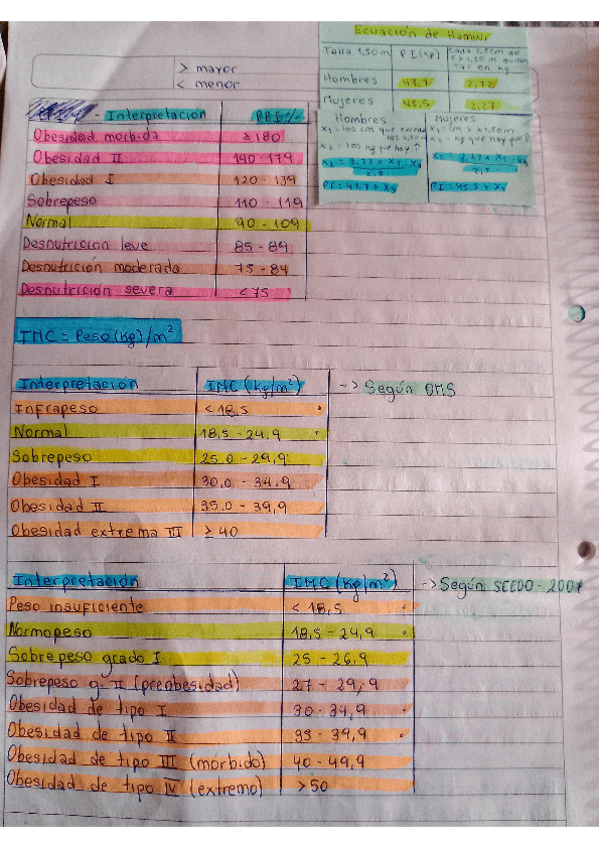 Ecuación de Hamwi
Talla 1,50m PI(kg) Cada 2,5cm de
T > 1,50m aumen
tar en kg
Hombres 47,7 2,72
Mujeres 45,5 2,27
Hombres Mujeres
X₁ = los cm que exced X₁ = cm > a 1,50m
los 1,50
X₂ = los kg que hay ? X₂ = kg que hay por ?
2,5
PI = 47,7 + X₂ PI = 45,5 + X₂
> mayor
< menor
- Interpretación PPI %
Obesidad mórbida ≥ 180
Obesidad II 140 - 179
Obesidad I 120 - 139
Sobrepeso 110 - 119
Normal 90 - 109
Desnutrición leve 85 - 89
Desnutrición moderada 75 - 84
Desnutrición severa < 75
IMC = Peso (kg) / m²
Interpretación IMC (kg/m²) -> Según OMS
Infrapeso < 18,5
Normal 18,5 - 24,9
Sobrepeso 25.0 - 29,9
Obesidad I 30,0 - 34.9
Obesidad II 35.0 - 39,9
Obesidad extrema III ≥ 40
Interpretación IMC (kg/m²) -> Según SEEDO - 2007
Peso insuficiente < 18,5
Normopeso 18,5 - 24,9
Sobrepeso grado I 25 - 26,9
Sobrepeso g. II (preobesidad) 27 - 29,9
Obesidad de tipo I 30 - 34,9
Obesidad de tipo II 35 - 39,9
Obesidad de tipo III (mórbido) 40 - 49,9
Obesidad de tipo IV (extremo) > 50